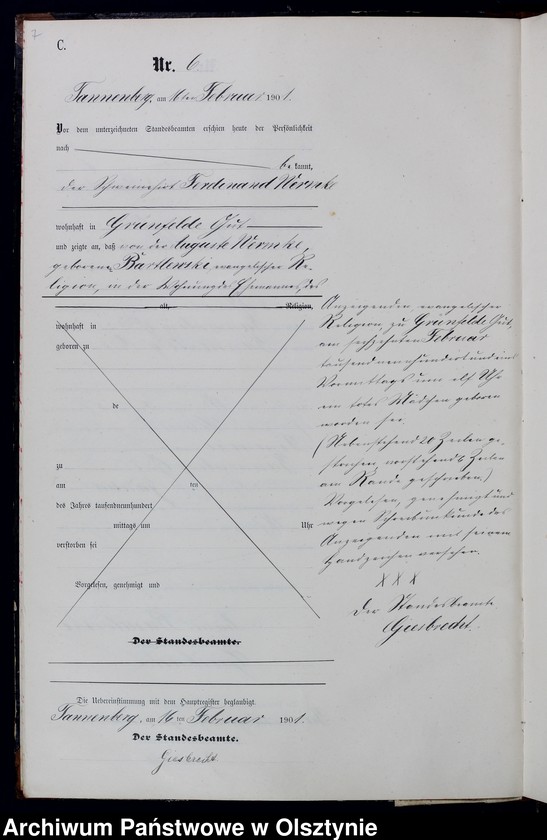 7
C.
Nr. 6
Tannenberg, am 16ten Februar 1901.
Vor dem unterzeichneten Standesbeamten erschien heute der Persönlichkeit
nach
bekannt,
der Schweinehirt Ferdinand Wernke
wohnhaft in Grünfelde Gut
und zeigte an, daß von der Auguste Wernke,
geborenen Bartlewski evangelischer Re-
ligion, in der Wohnung des Ehemannes, des
alt, Religion,
wohnhaft in
geboren zu
de
zu
am ten
des Jahres tausendneunhundert
mittags um Uhr
verstorben sei
Vorgelesen, genehmigt und
Der Standesbeamte.
Anzeigenden evangelischer
Religion, zu Grünfelde Gut,
am sechzehnten Februar
tausend neunhundert und eins
Vormittags um elf Uhr
ein totes Mädchen geboren
worden sei.
(Nebenstehend 20 Zeilen ge-
strichen, vorstehend 6 Zeilen
am Rande geschrieben.)
Vorgelesen, genehmigt und
wegen Schreibunkunde des
Anzeigenden mit seinem
Handzeichen versehen.
X X X
Der Standesbeamte
Giesbrecht.
Die Uebereinstimmung mit dem Hauptregister beglaubigt.
Tannenberg, am 16 ten Februar 1901.
Der Standesbeamte.
Giesbrecht
Archiwum Państwowe w Olsztynie